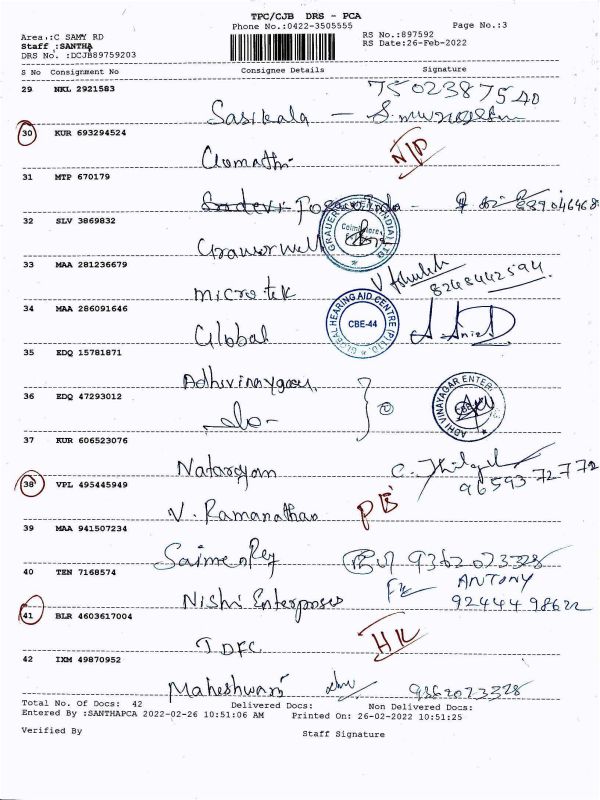 TPC/CJB DRS - PCA
Phone No.:0422-3505555 Page No.:3
Area :C SAMY RD RS No.:897592
Staff :SANTHA RS Date:26-Feb-2022
DRS No. :DCJB89759203
S No Consignment No Consignee Details Signature
29 NKL 2921583
Sasikala - 7502387540
30 KUR 693294524
Gomathi N/D
31 MTP 670179
32 SLV 3869832
GRAUER (INDIA) Coimbatore
33 MAA 281236679
microtek 8248442594
34 MAA 286091646
Global GLOBAL HEARING AID CENTRE (P) LTD. CBE-44
35 EDQ 15781871
36 EDQ 47293012
-do- ② ADHI VINAYAGAR ENTER
37 KUR 606523076
Natarajan 96593 72772
38 VPL 495445949
V. Ramanathan
39 MAA 941507234
9362073328
40 TEN 7168574
Nishi Enterprises ANTONY
92444 98622
41 BLR 4603617004
42 IXM 49870952
Maheshwari 9362073328
Total No. Of Docs: 42 Delivered Docs: Non Delivered Docs:
Entered By :SANTHAPCA 2022-02-26 10:51:06 AM Printed On: 26-02-2022 10:51:25
Verified By Staff Signature